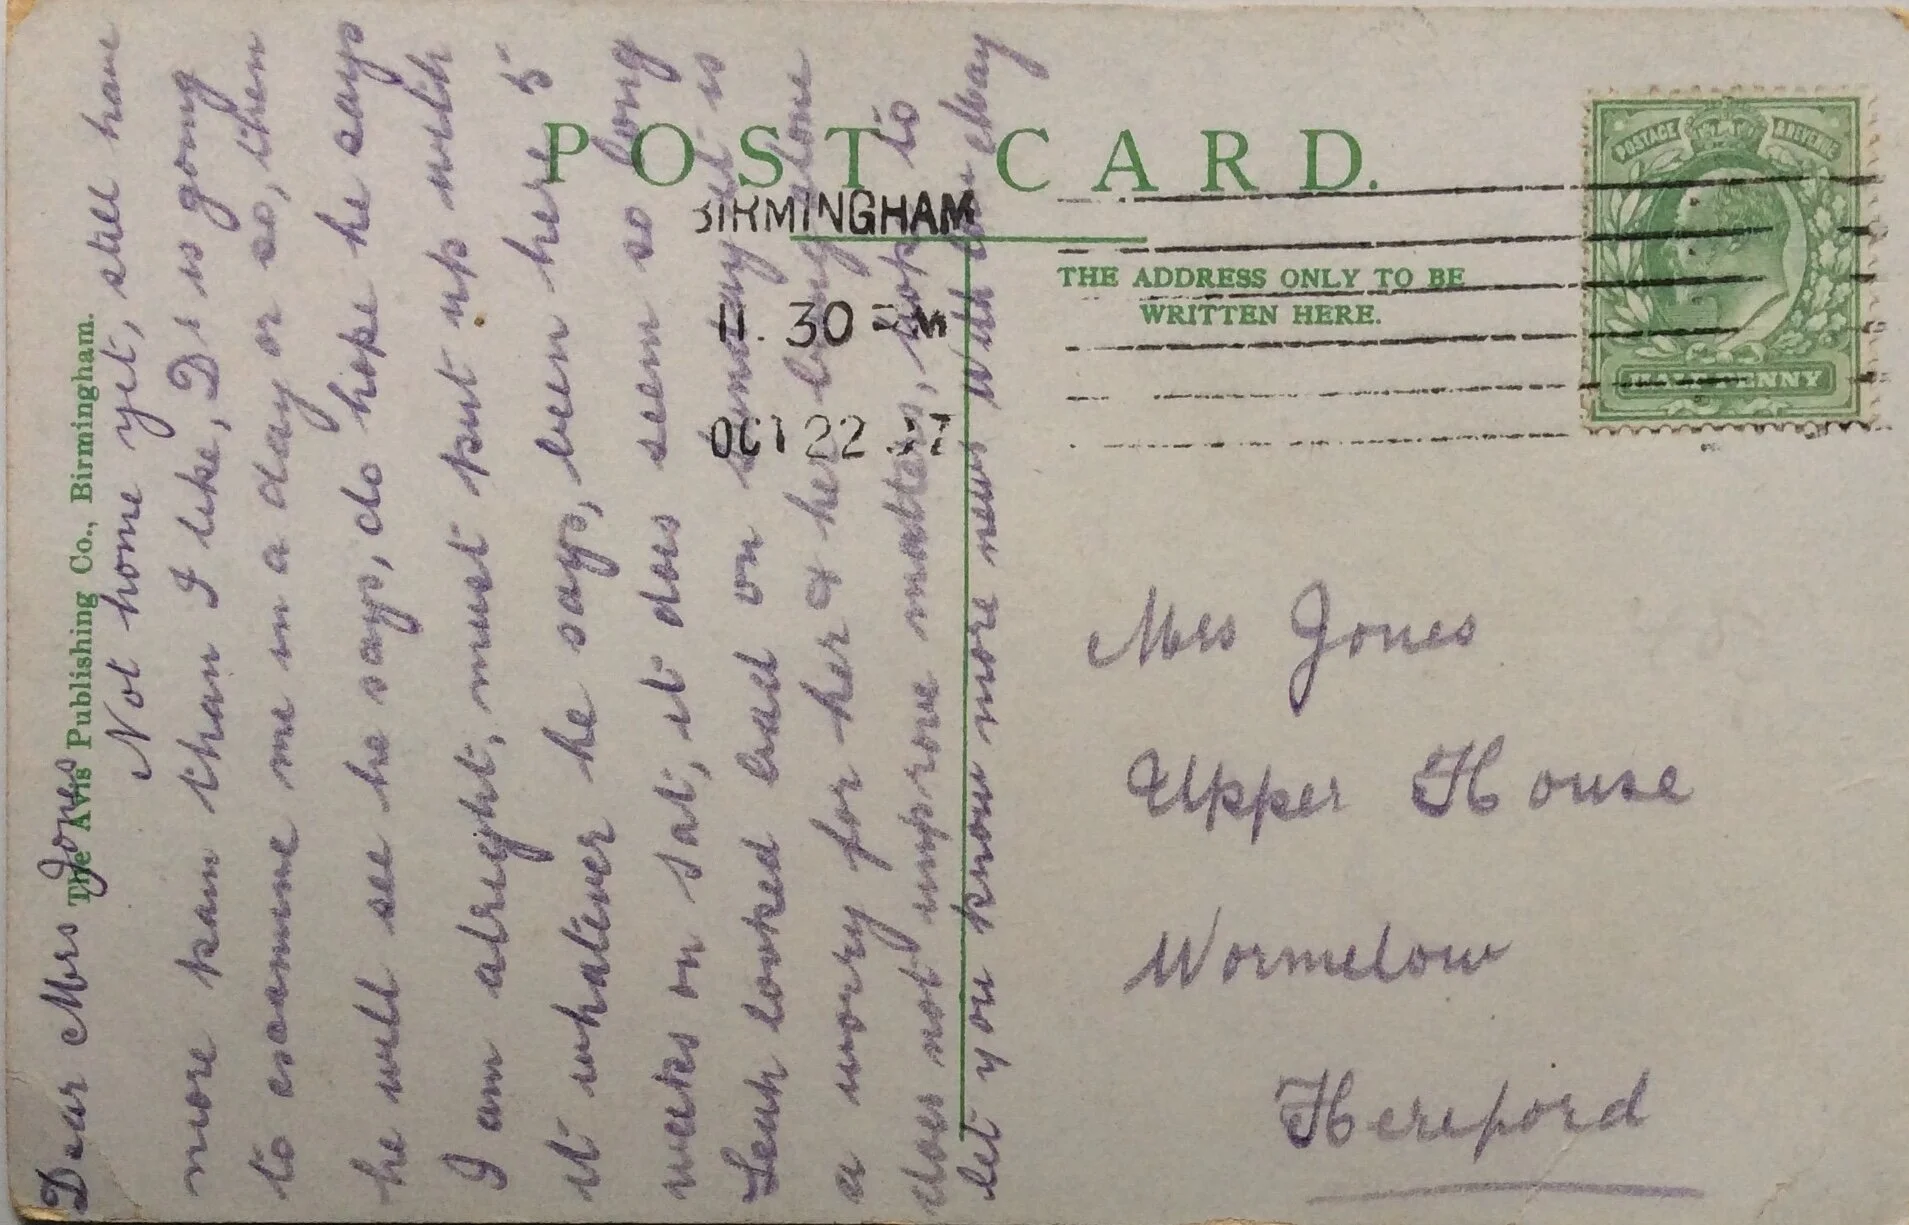 POST CARD.
THE ADDRESS ONLY TO BE
WRITTEN HERE.
The Avis Publishing Co., Birmingham.
BIRMINGHAM
11. 30
OCT 22
POSTAGE & REVENUE
HALFPENNY
Dear Mrs Jones
Not home yet, still have
more pain than I like, Dr is going
to examine me in a day or so, then
he will see he says, do hope he says
I am alreight, must put up with
it whatever he says, been here 5
weeks on Sat, it does seem so long
Leah looked bad on sunday it is
a worry for her & her being alone
does not improve matters, hope to
let you know more news with love May
Mrs Jones
Upper House
Wormelow
Hereford